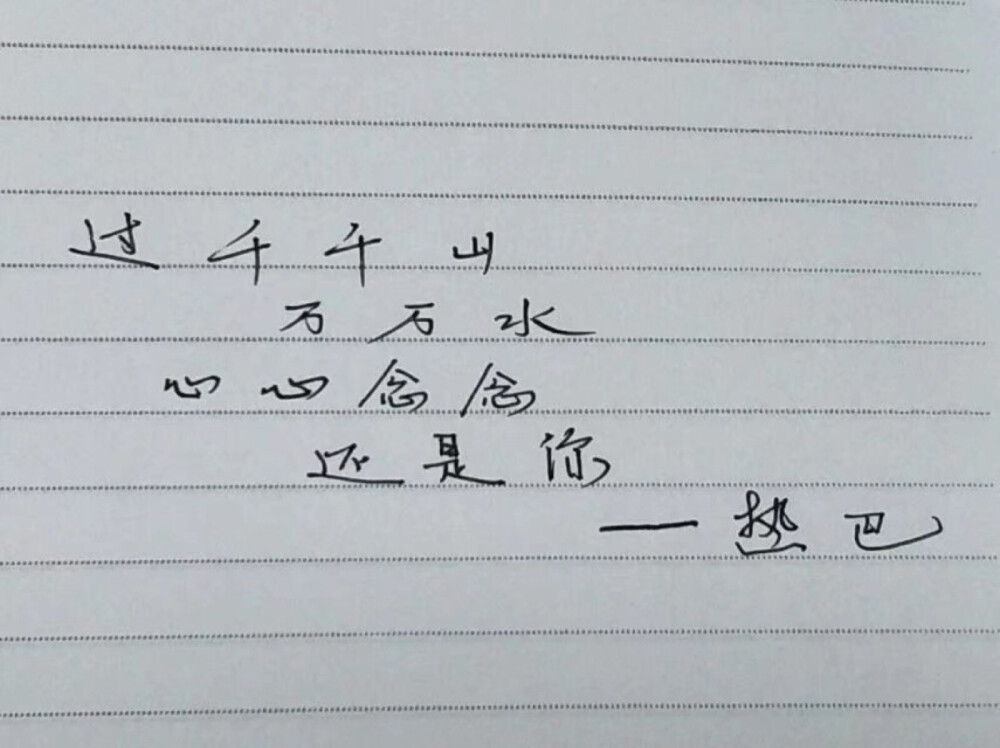 过千千山
万万水
心心念念
还是你
—热巴